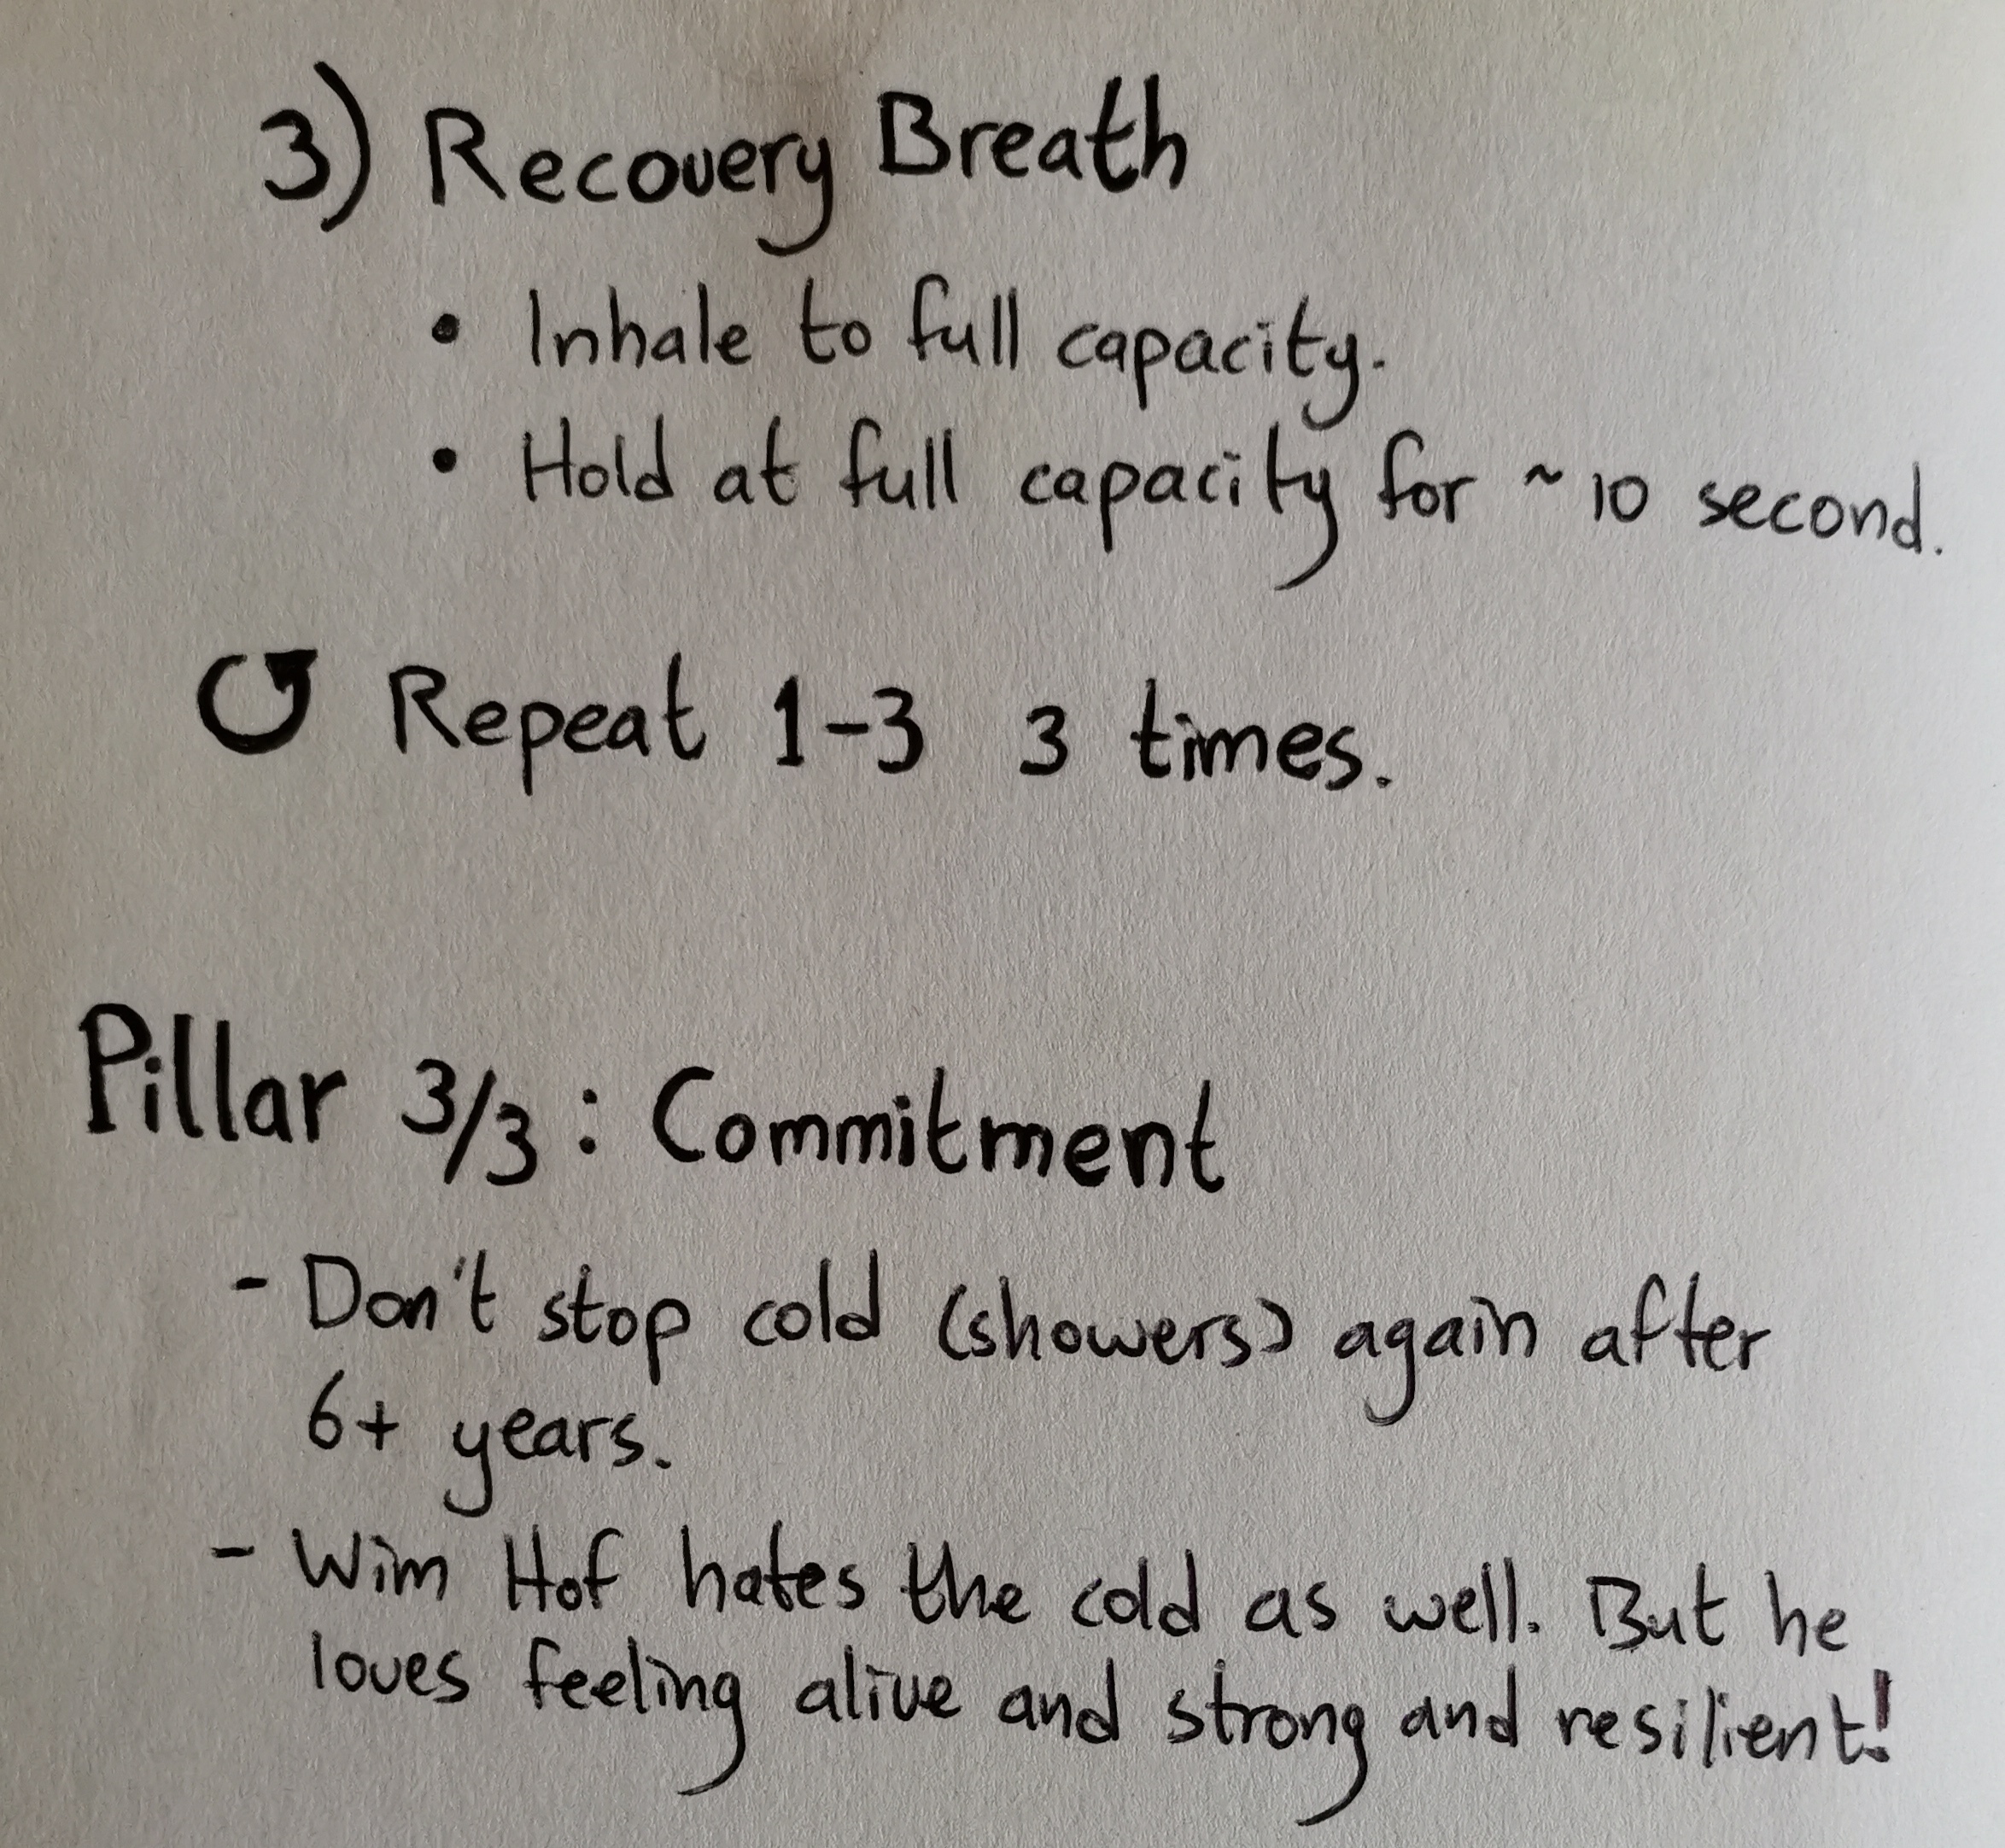 3) Recovery Breath
• Inhale to full capacity.
• Hold at full capacity for ~ 10 second.
↺ Repeat 1-3 3 times.
Pillar 3/3: Commitment
- Don't stop cold (showers) again after
6+ years.
- Wim Hof hates the cold as well. But he
loves feeling alive and strong and resilient!